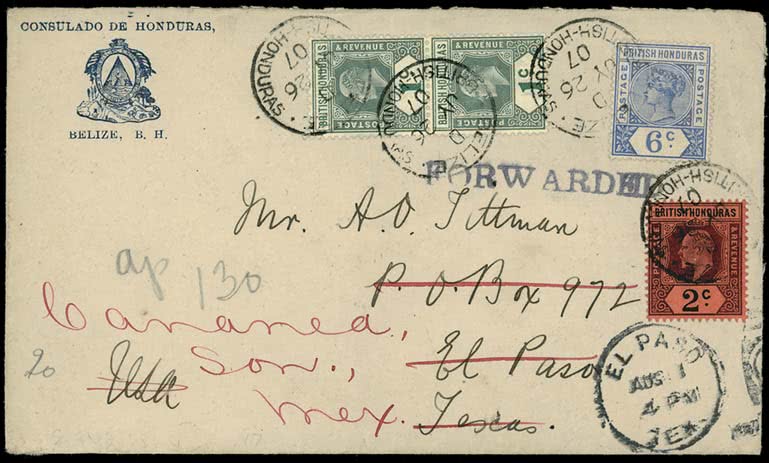 CONSULADO DE HONDURAS,
BELIZE, B. H.
BRITISH HONDURAS
POSTAGE
& REVENUE
1c
BRITISH HONDURAS
POSTAGE
& REVENUE
1c
BRITISH HONDURAS
POSTAGE
POSTAGE
6c
BRITISH HONDURAS
POSTAGE
& REVENUE
2c
BELIZE
BRITISH-HONDURAS
26
07
BELIZE
BRITISH-HONDURAS
26
07
BRITISH-HONDURAS
JY 26
07
BRITISH-HONDURAS
07
FORWARDED
Mr. A. O. Tittman
P. O. Box 972
El Paso
Texas
USA
Cananea,
Son.,
Mex.
ap 130
20
EL PASO
AUG 1
4 PM
TEX.